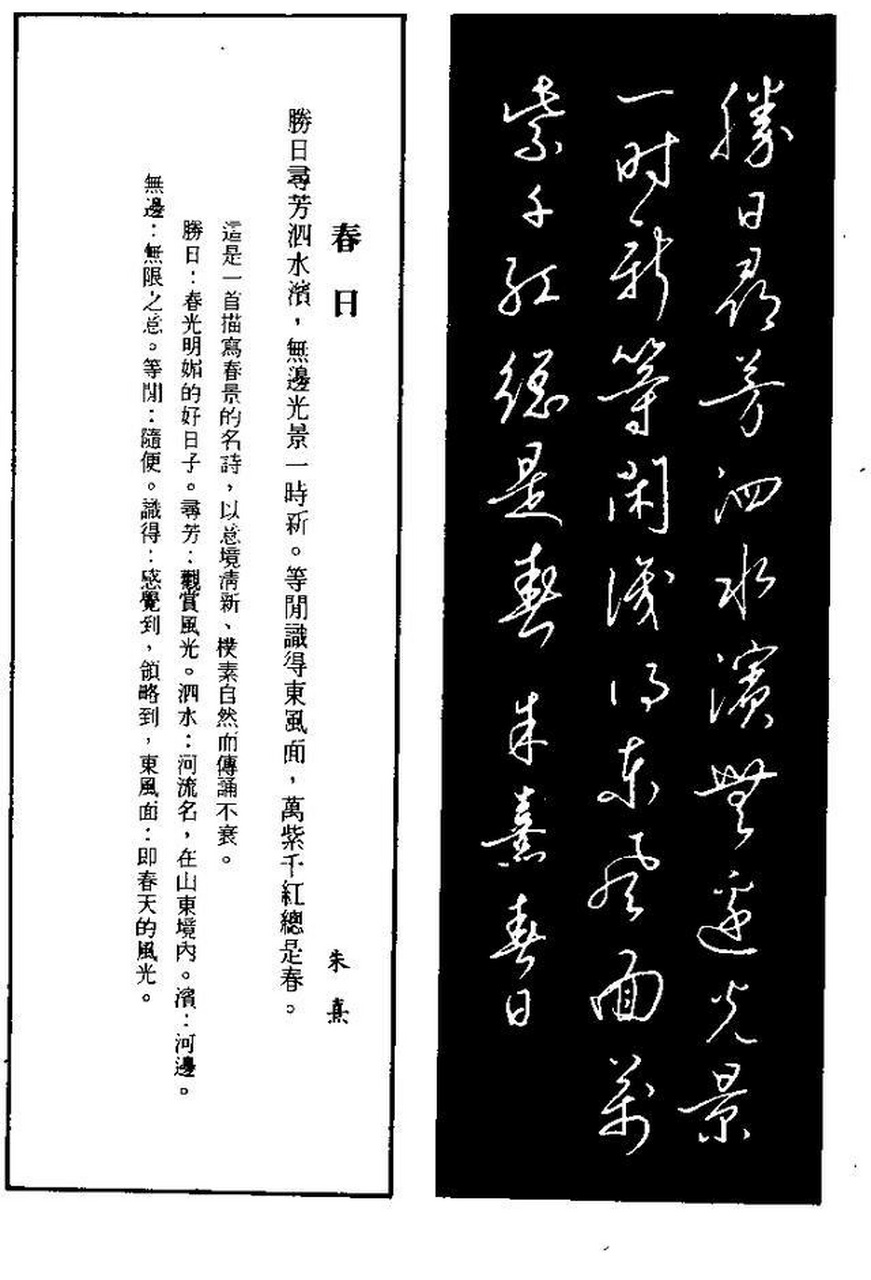 勝日尋芳泗水濱無邊光景
一时新等闲识得东风面萬
紫千红總是春 朱熹春日
春日 朱熹
勝日尋芳泗水濱，無邊光景一時新。等閒識得東風面，萬紫千紅總是春。
這是一首描寫春景的名詩，以意境清新、樸素自然而傳誦不衰。
勝日：春光明媚的好日子。尋芳：觀賞風光。泗水：河流名，在山東境內。濱：河邊。
無邊：無限之意。等閒：隨便。識得：感覺到，領略到，東風面：即春天的風光。